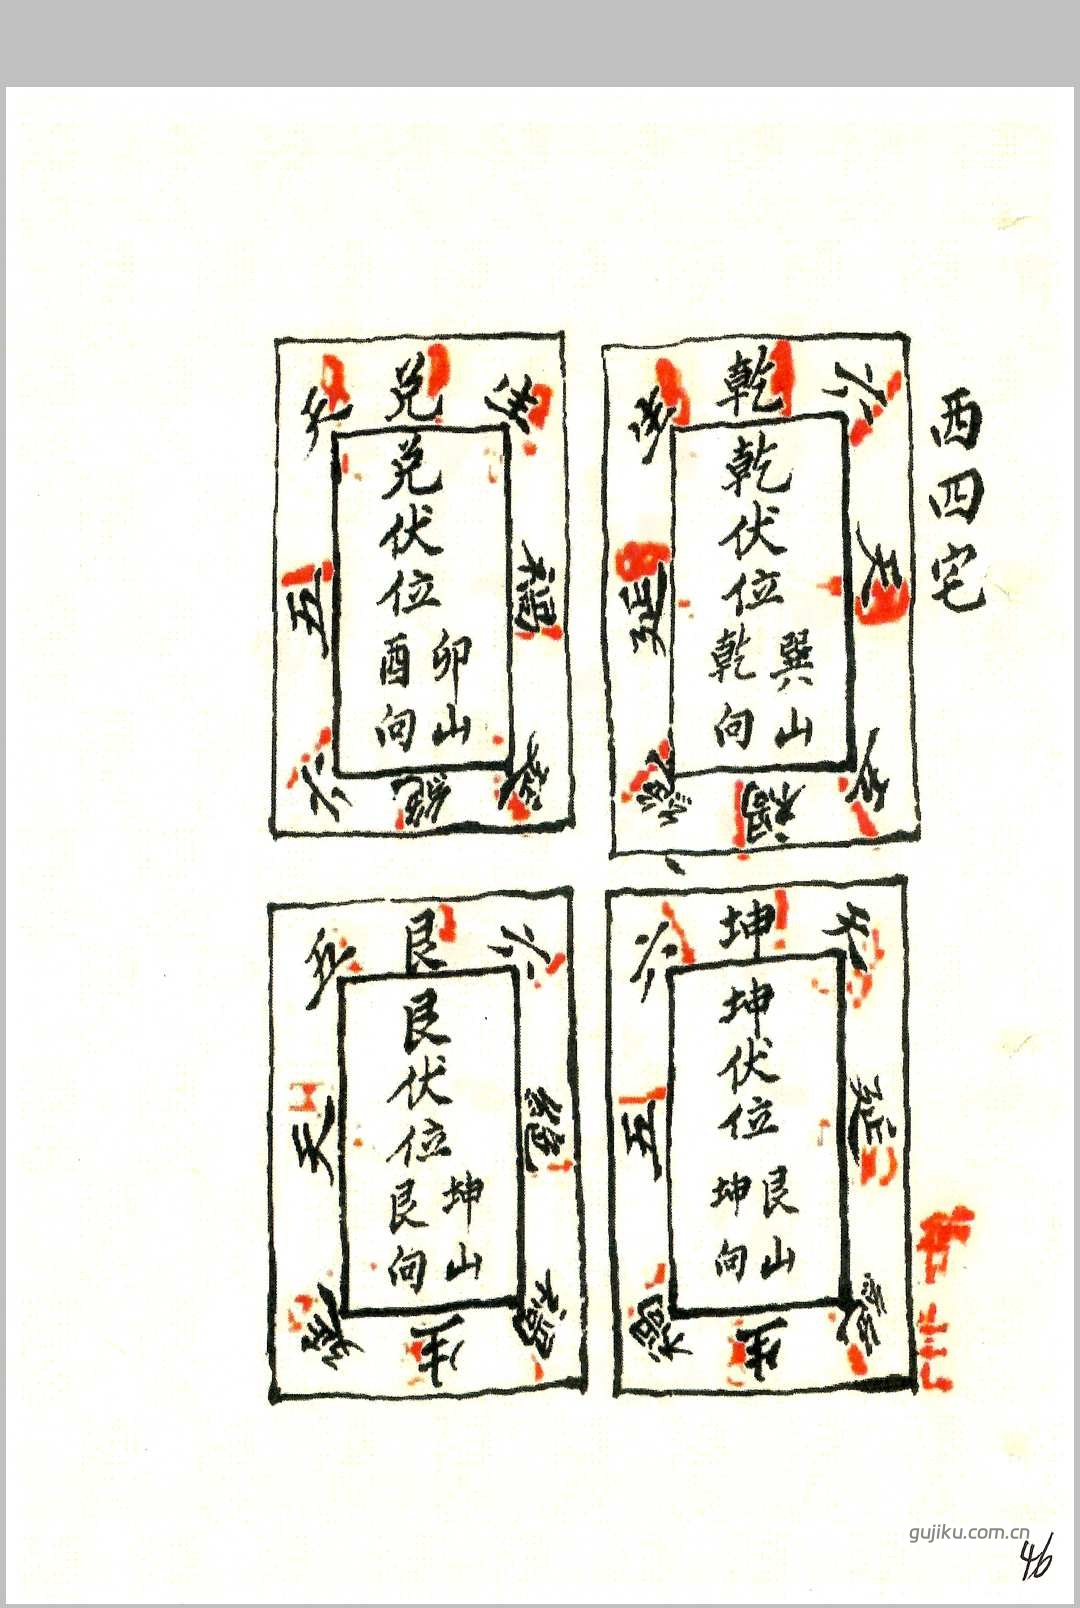 西四宅
乾
六
天
五
禍
絕
延
生
乾伏位
巽山
乾向
兌
生
禍
延
絕
六
五
天
兌伏位
卯山
酉向
坤
天
延
絕
生
禍
五
六
坤伏位
艮山
坤向
艮
六
絕
禍
生
延
天
五
艮伏位
坤山
艮向
gujiku.com.cn
46